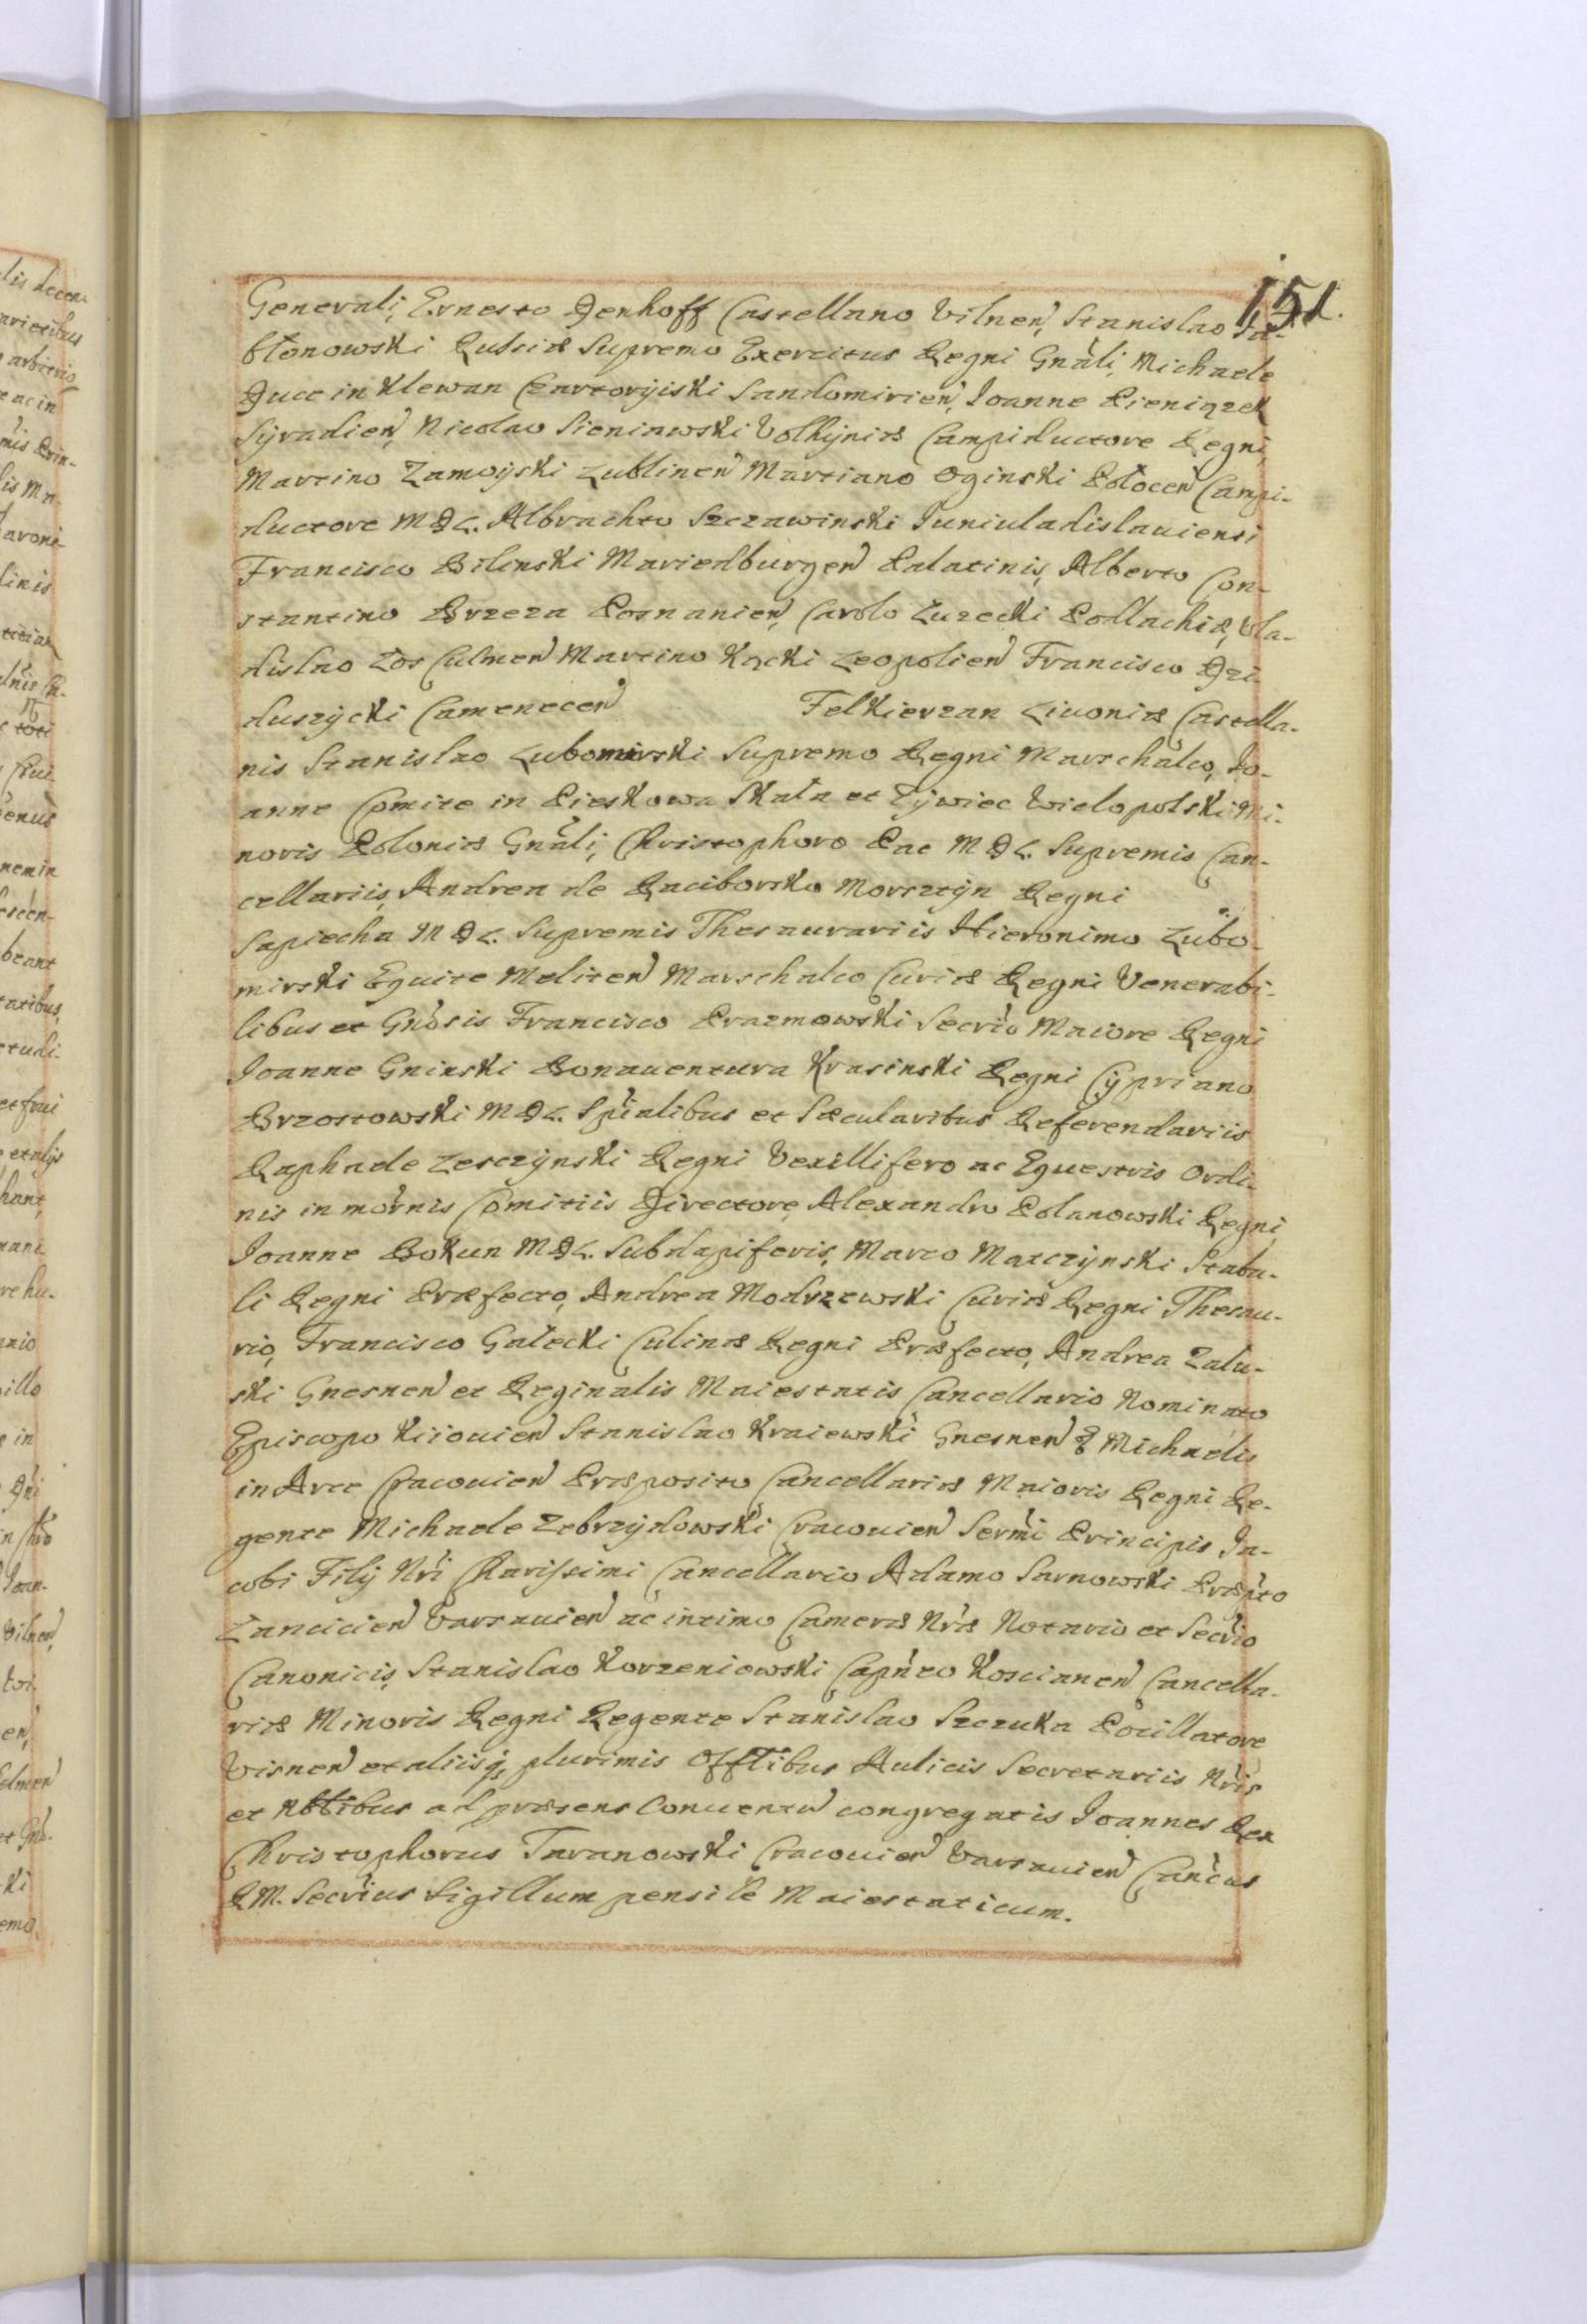 151.
Generali, Ernesto Denhoff Castellano Vilnen, Stanislao Ja-
błonowski Russiæ Supremo Exercitus Regni Gnăli, Michaele
Duce in Klewan Czartoryiski Sandomirien, Ioanne Pieniązek
Syradien, Nicolao Sieniawski Volhyniæ Campiductore Regni,
Martino Zamoyski Lublinen Martiano Oginski Połocen Campi-
ductore M.D.L. Albrachto Szczawinski Iuniuladislauiensi
Francisco Bilinski Marienburgen Palatinis, Alberto Con-
stantino Brzeza Posnanien, Carolo Łuzecki Podlachiæ, Vla-
dislao Łos Culmen Martino Kącki Leopolien Francisco Dzi-
duszycki Camenecen Felkierzan Liuoniæ Castella-
nis Stanislao Lubomirski Supremo Regni Marschalco, Io-
anne Comite in Pieskowa Skała et Żywiec Wielopolski Mi-
noris Poloniæ Gnăli, Christophoro Pac M.D.L. Supremis Can-
cellariis, Andrea de Raciborsko Morsztyn Regni
Sapiecha M.D.L. Supremis Thesaurariis Hieronimo Lubo-
mirski Equite Meliten Marschalco Curiæ Regni Venerabi-
libus et Gnŏsis Francisco Prazmowski Secrio Maiore Regni
Ioanne Gninski Bonauentura Krasinski Regni Cypriano
Brzostowski M.D.L. Spŭalibus et Sæcularibus Referendariis
Raphaele Leszczynski Regni Vexillifero ac Equestris Ordi-
nis in mŏrnis Comitiis Directore, Alexandro Polanowski Regni,
Ioanne Bokun M.D.L. Subdapiferis, Marco Matczynski Stabu-
li Regni Præfecto, Andrea Modrzewski Curiæ Regni Thesau-
rio, Francisco Gałecki Culinæ Regni Præfecto, Andrea Zalu-
ski Gnesnen et Reginalis Maiestatis Cancellario Nominato
Episcopo Kiiouien Stanislao Kraiewski Gnesnen & Michaelis
in Arce Cracouien Præposito Cancellariæ Maioris Regni Re-
gente Michaele Zebrzydowski Cracouien Serm̃i Principis Ia-
cobi Filij Nr̃i Charissimi Cancellario Adamo Sarnowski Præp̃to
Lancicien Varsauien ac intimo Cameræ Nr̃æ Notario et Secrio
Canonicis, Stanislao Korzeniowski Cap̃neo Koscianen Cancella-
riæ Minoris Regni Regente Stanislao Szczuka Pocillatore
Visnen et aliisq; plurimis Offtibus Aulicis Secretariis Nr̃is
et Nbtibus ad præsens Conuentũ congregatis Ioannes Rex
Christophorus Taranowski Cracouien Varsauien Cañcus
R.M. Secrius Sigillum pensile Maiestaticum.